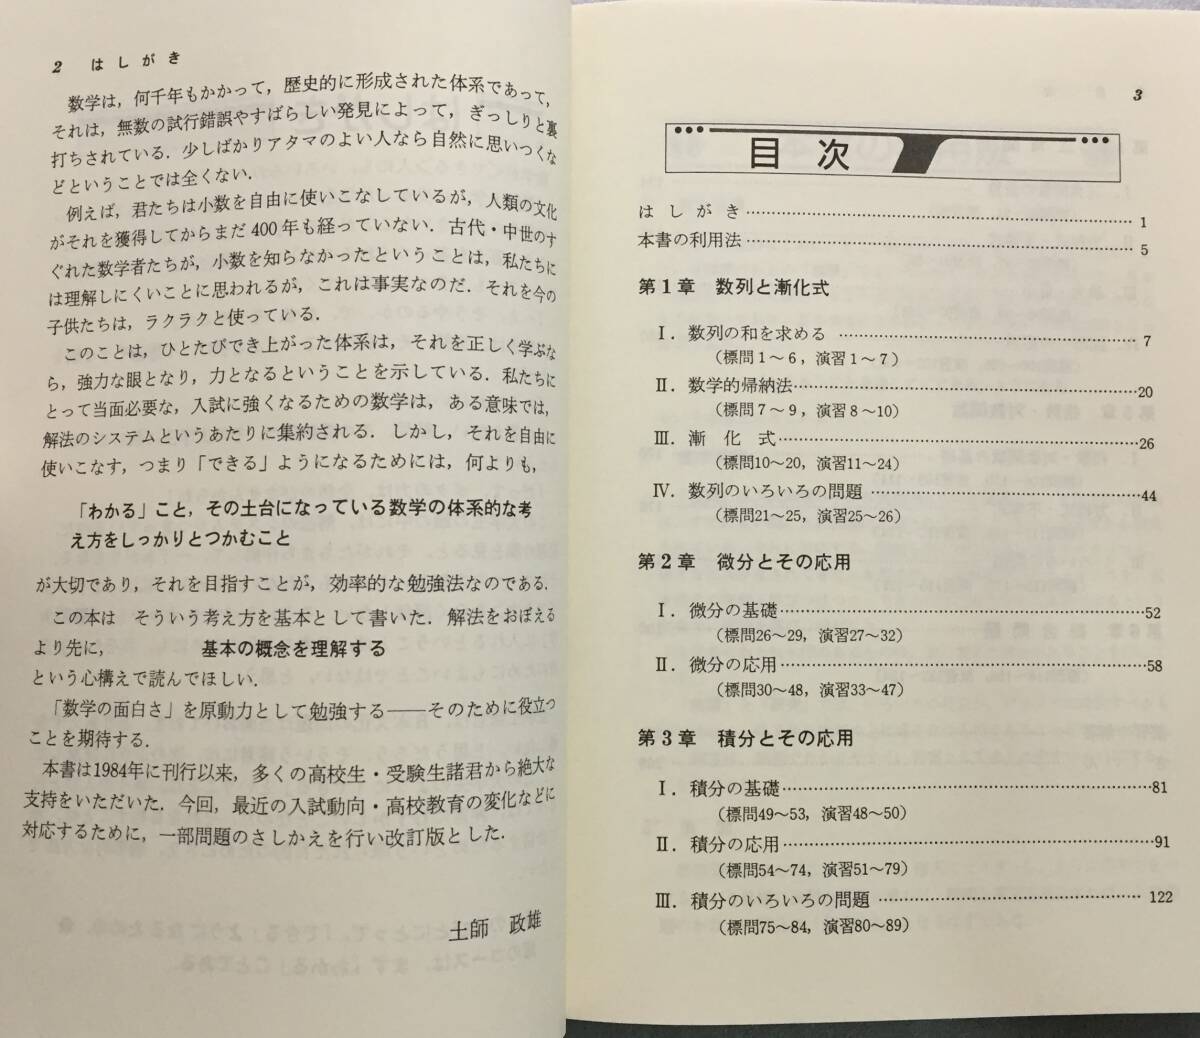 2 はしがき
数学は，何千年もかかって，歴史的に形成された体系であって，
それは，無数の試行錯誤やすばらしい発見によって，ぎっしりと裏
打ちされている．少しばかりアタマのよい人なら自然に思いつくな
どということでは全くない．
例えば，君たちは小数を自由に使いこなしているが，人類の文化
がそれを獲得してからまだ400年も経っていない．古代・中世のす
ぐれた数学者たちが，小数を知らなかったということは，私たちに
は理解しにくいことに思われるが，これは事実なのだ．それを今の
子供たちは，ラクラクと使っている．
このことは，ひとたびでき上がった体系は，それを正しく学ぶな
ら，強力な眼となり，力となるということを示している．私たちに
とって当面必要な，入試に強くなるための数学は，ある意味では，
解法のシステムというあたりに集約される．しかし，それを自由に
使いこなす，つまり「できる」ようになるためには，何よりも，
「わかる」こと，その土台になっている数学の体系的な考
え方をしっかりとつかむこと
が大切であり，それを目指すことが，効率的な勉強法なのである．
この本は　そういう考え方を基本として書いた．解法をおぼえる
より先に，　基本の概念を理解する
という心構えで読んでほしい．
「数学の面白さ」を原動力として勉強する――そのために役立つ
ことを期待する．
本書は1984年に刊行以来，多くの高校生・受験生諸君から絶大な
支持をいただいた．今回，最近の入試動向・高校教育の変化などに
対応するために，一部問題のさしかえを行い改訂版とした．
土師　政雄
3
目次
はしがき……1
本書の利用法……5
第1章　数列と漸化式
Ⅰ．数列の和を求める……7
（標問1～6，演習1～7）
Ⅱ．数学的帰納法……20
（標問7～9，演習8～10）
Ⅲ．漸化式……26
（標問10～20，演習11～24）
Ⅳ．数列のいろいろの問題……44
（標問21～25，演習25～26）
第2章　微分とその応用
Ⅰ．微分の基礎……52
（標問26～29，演習27～32）
Ⅱ．微分の応用……58
（標問30～48，演習33～47）
第3章　積分とその応用
Ⅰ．積分の基礎……81
（標問49～53，演習48～50）
Ⅱ．積分の応用……91
（標問54～74，演習51～79）
Ⅲ．積分のいろいろの問題……122
（標問75～84，演習80～89）